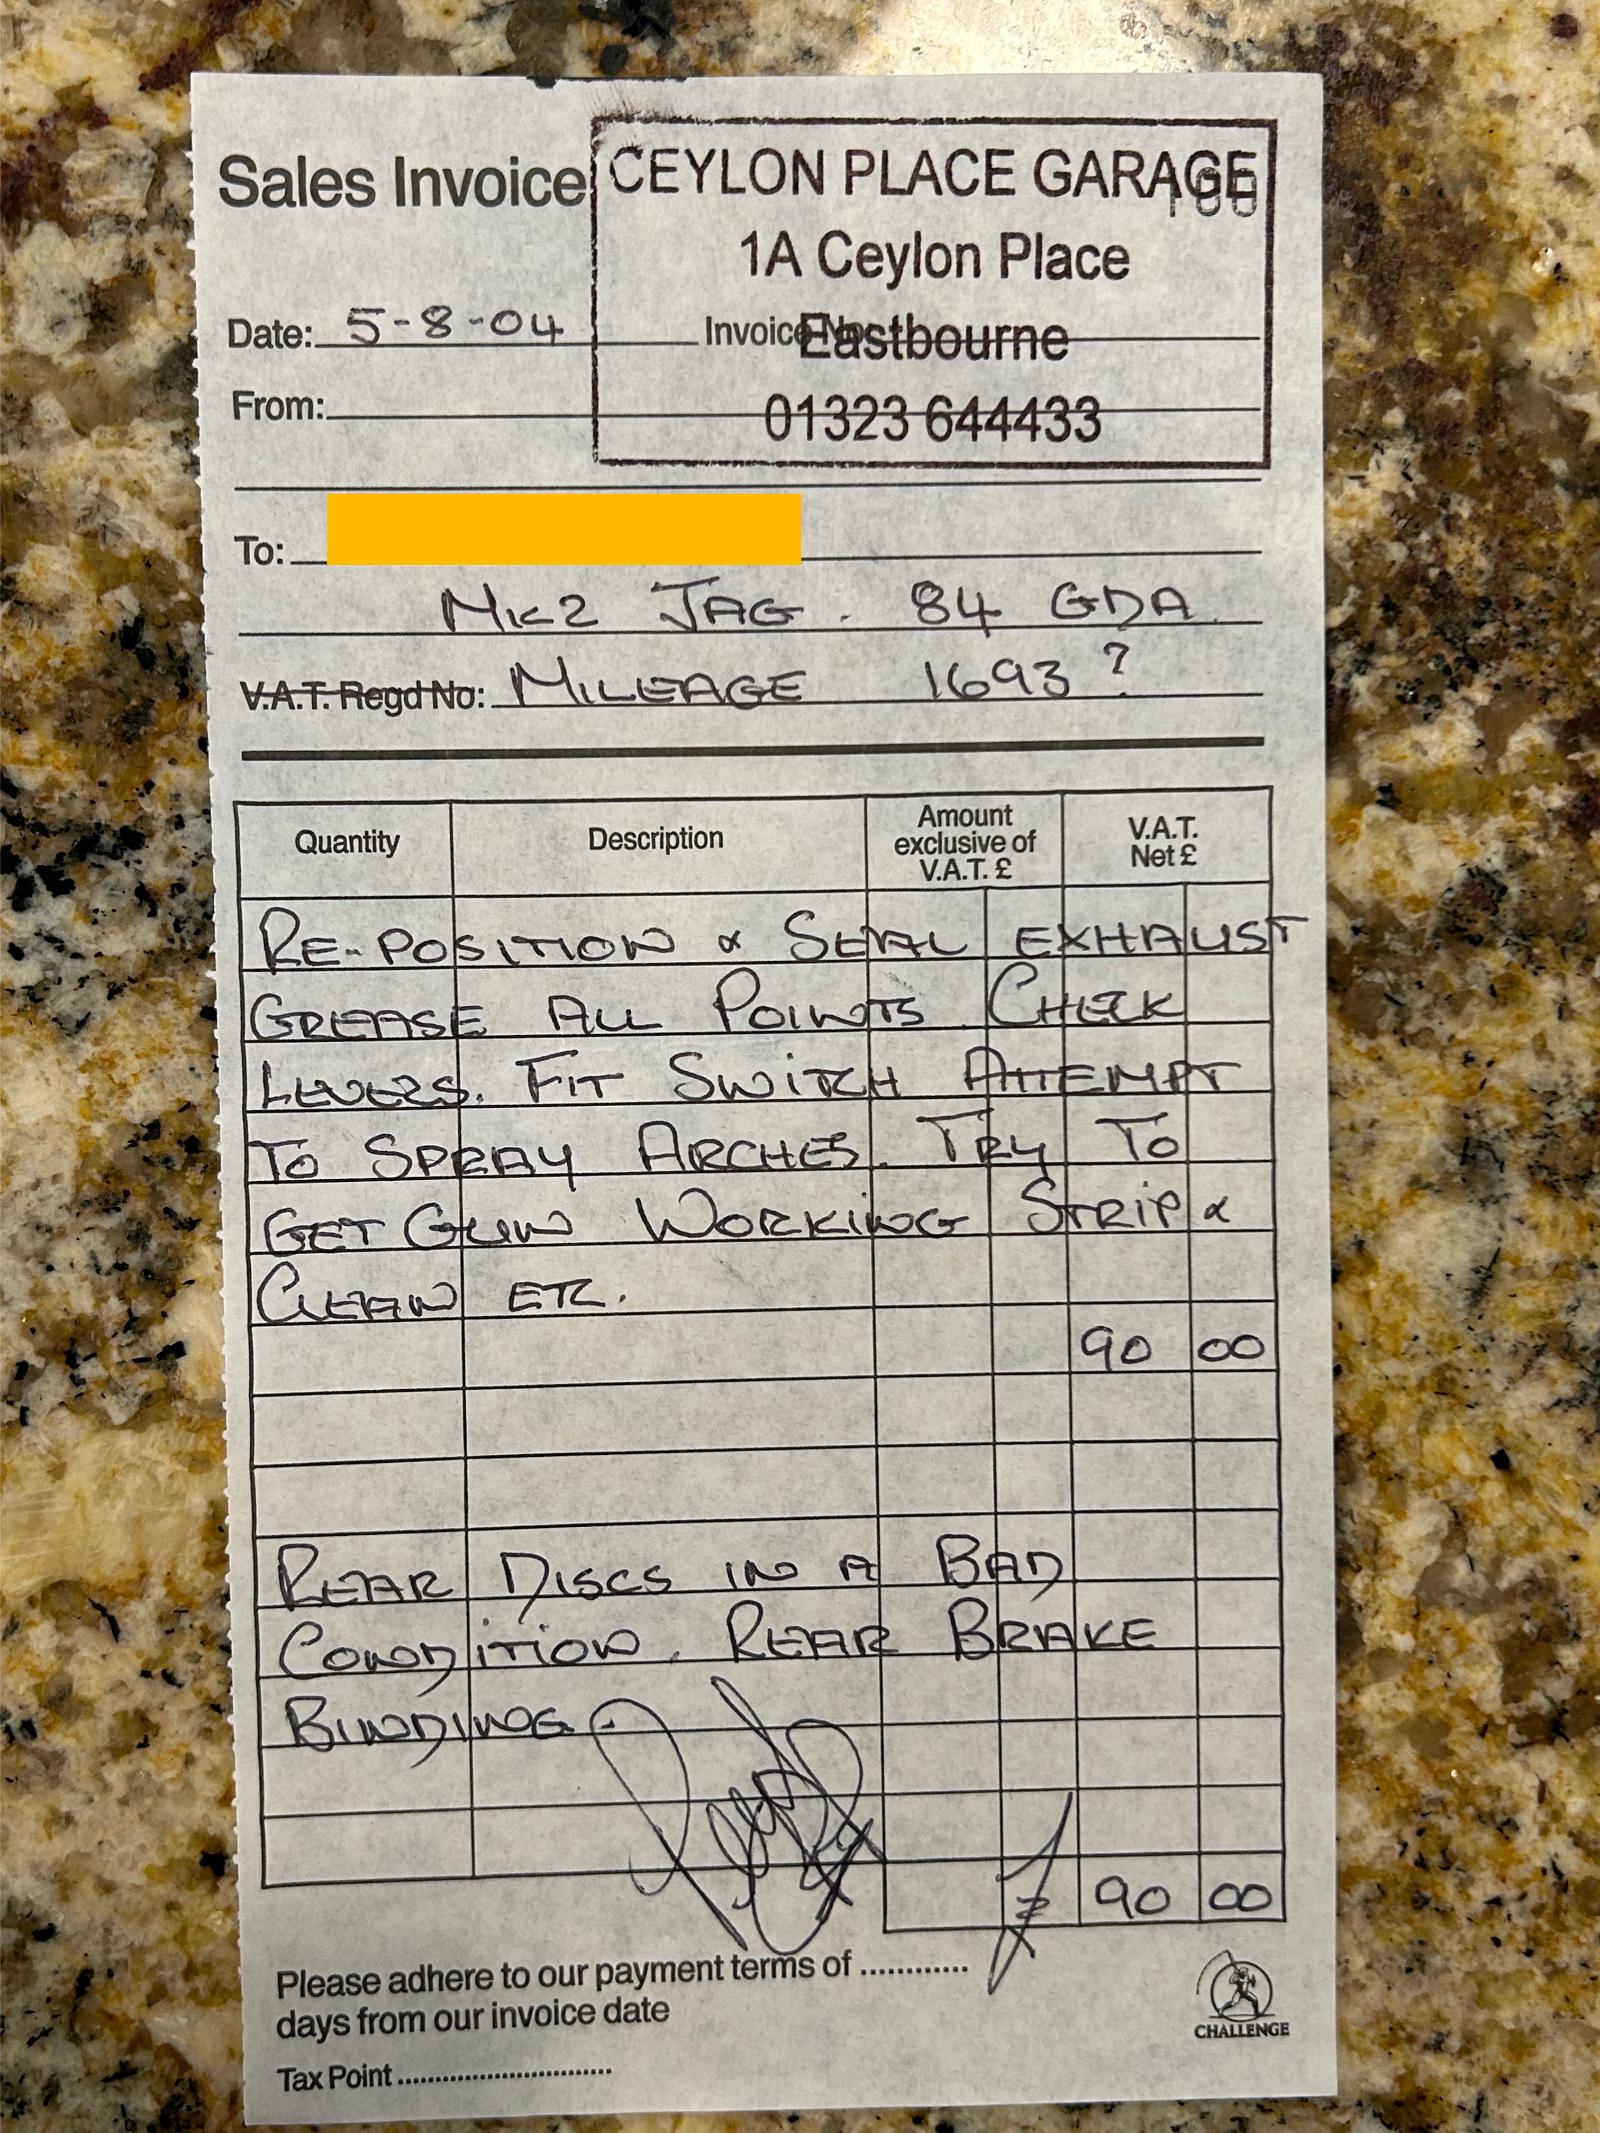 Sales Invoice
CEYLON PLACE GARAGE
1A Ceylon Place
Eastbourne
01323 644433
Date: 5-8-04
Invoice No:
From:
To:
MK2 JAG. 84 GDA.
V.A.T. Regd No: MILEAGE 1693?
Quantity Description Amount exclusive of V.A.T. £ V.A.T. Net £
RE-POSITION & SEAL EXHAUST
GREASE ALL POINTS. CHECK
LEVELS. FIT SWITCH ATTEMPT
TO SPRAY ARCHES. TRY TO
GET GUN WORKING STRIP &
CLEAN ETC.
90 00
REAR DISCS IN A BAD
CONDITION. REAR BRAKE
BINDING.
90 00
Please adhere to our payment terms of ............
days from our invoice date
CHALLENGE
Tax Point ..............................